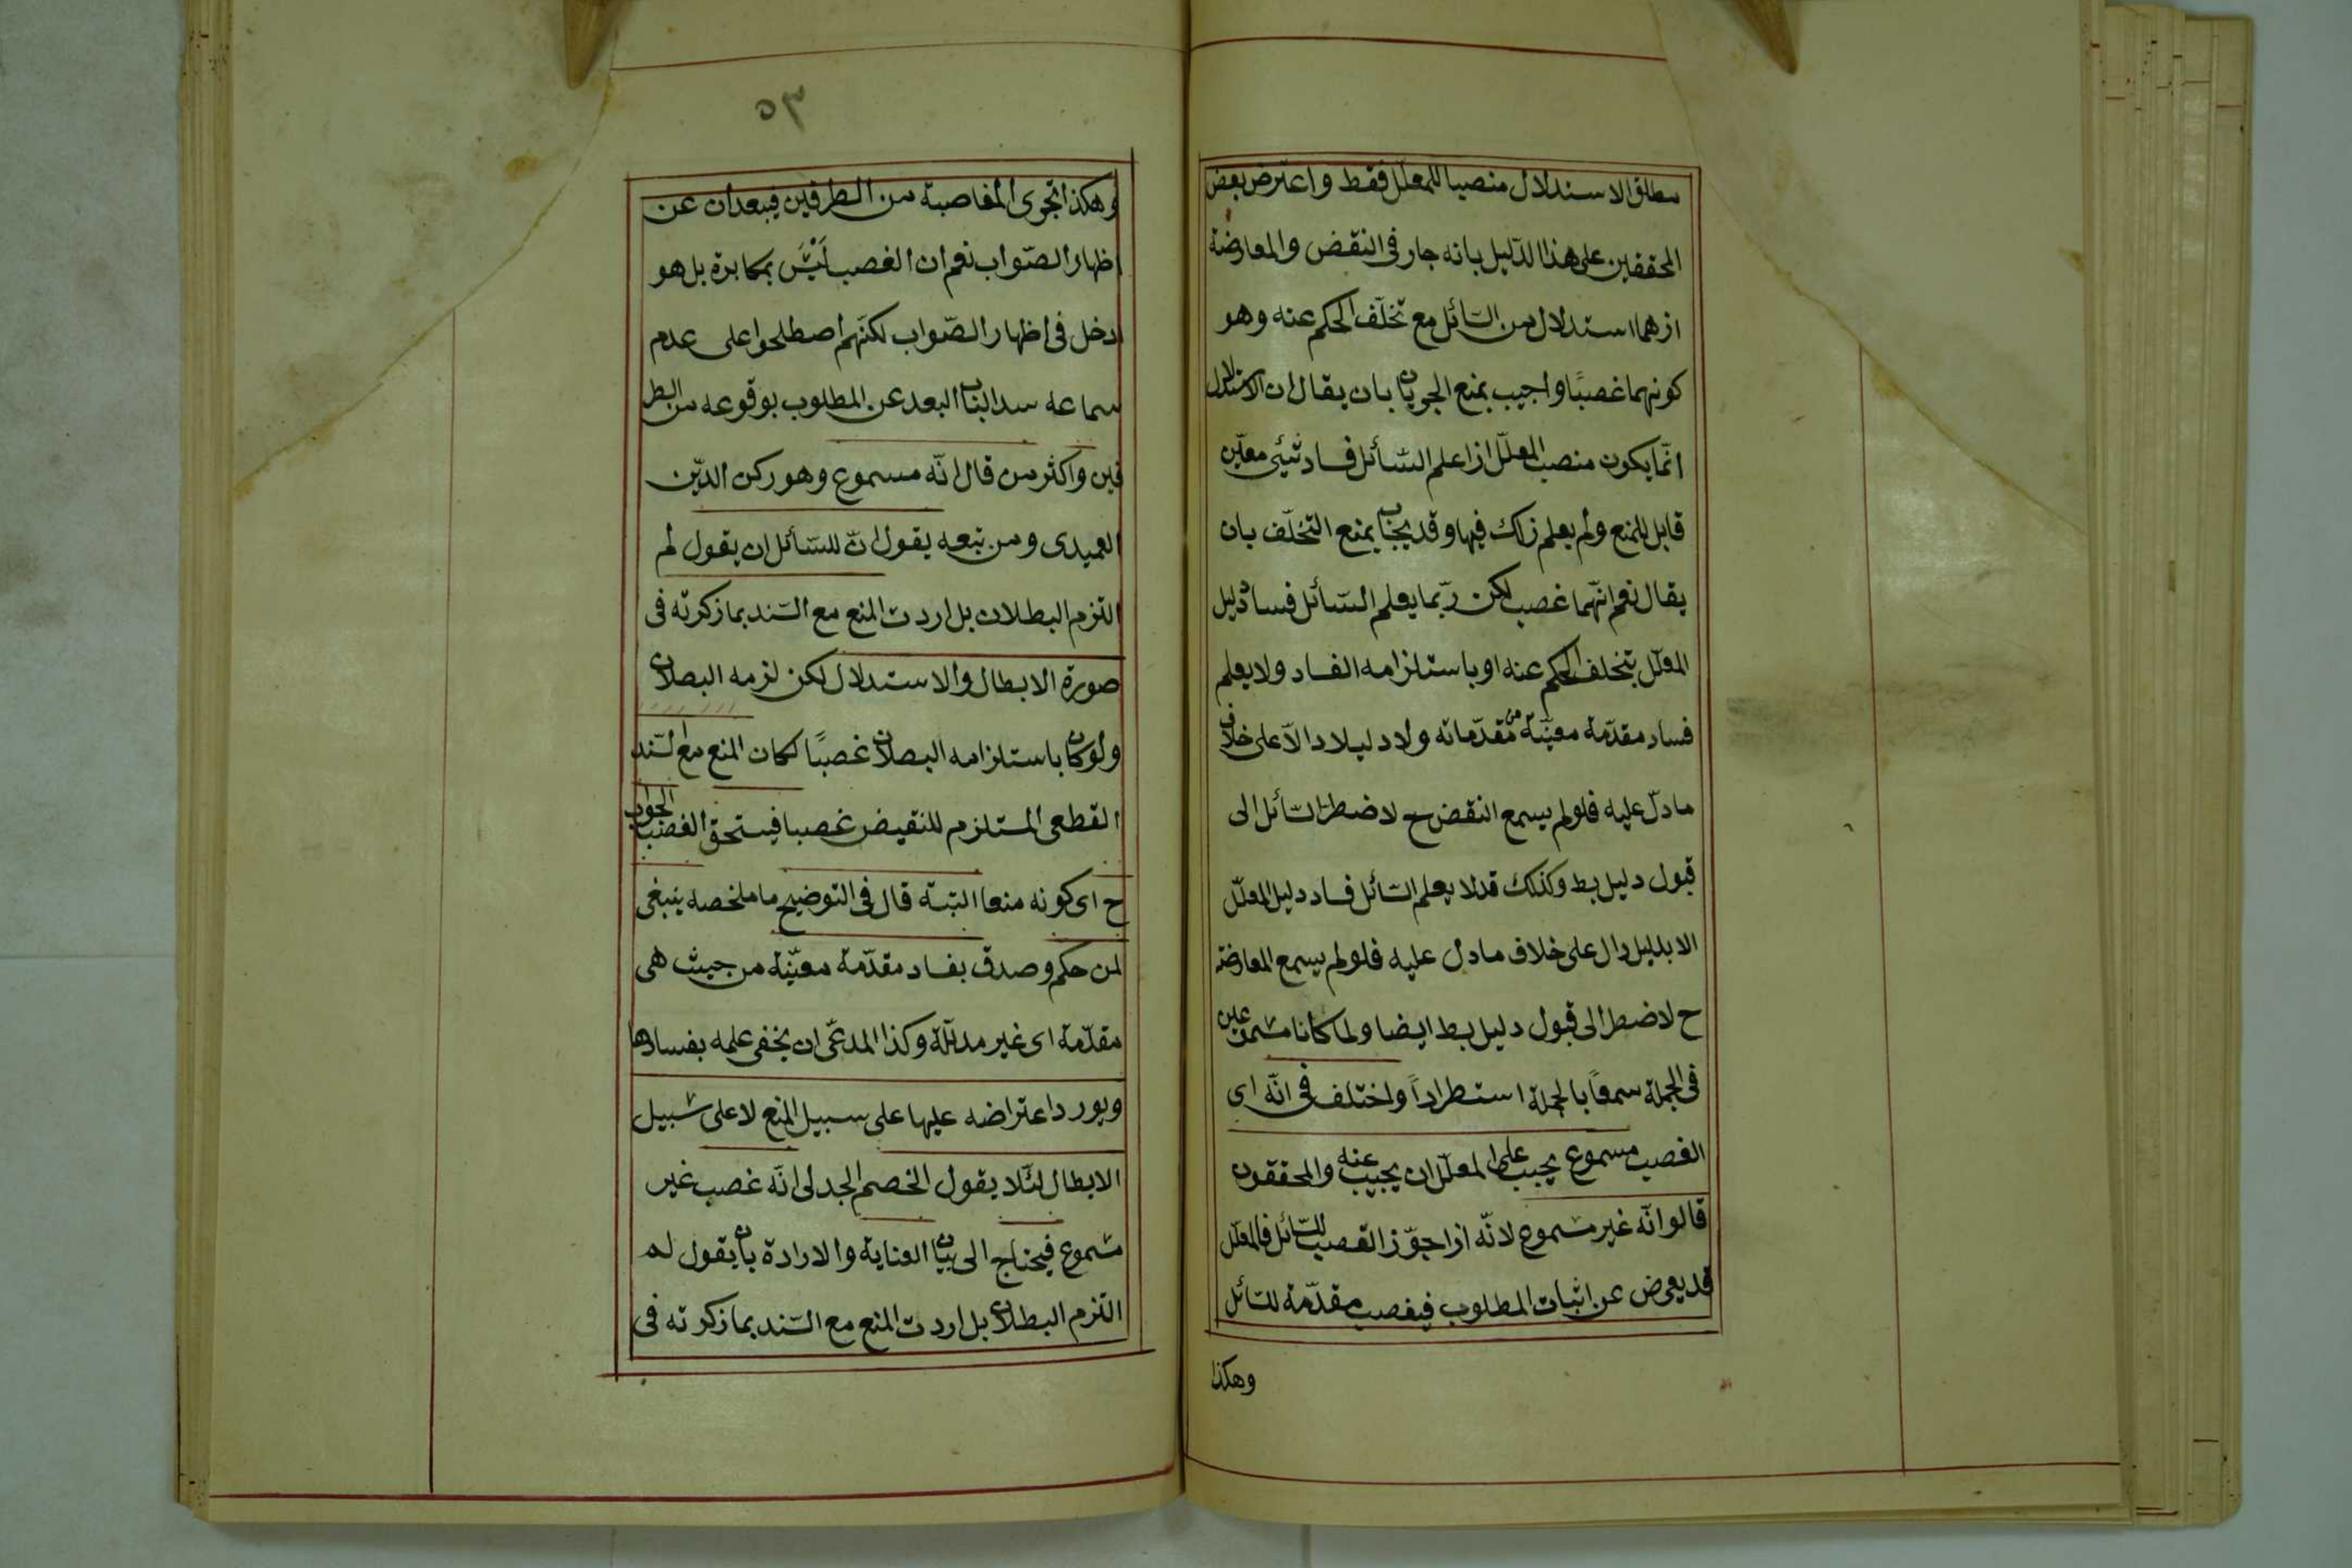 مطلق الاستدلال منصبا للمعلّل فقط واعترض بعض
المحققين على هذا الدّليل بانه جار فى النقض والمعارضة
اذ هما استدلال من السّائل مع تخلّف الحكم عنه وهو
كونهما غصبًا واجيب بمنع الجريان بان يقال ان الاستدلال
انّما يكون منصب المعلّل اذا علم السّائل فساد شئ معيّن
قابل للمنع ولم يعلم ذلك فيها وقد يجاب بمنع التخلّف بان
يقال نعم انّهما غصب لكن ربّما يعلم السّائل فساد دليل
المعلّل بتخلف الحكم عنه او باستلزامه الفساد ولا يعلم
فساد مقدّمة معيّنة من مقدّماته ولا دليلا دالّا على خلاف
ما دلّ عليه فلو لم يسمع النقض ح لاضطرّ السّائل الى
قبول دليل بط وكذلك قد لا يعلم السّائل فساد دليل المعلّل
الا بدليل دال على خلاف ما دل عليه فلو لم يسمع المعارضة
ح لاضطر الى قبول دليل بط ايضا ولما كانا مسموعين
فى الجملة سمعاً بالجملة استطراداً واختلف فى انّه اى
الغصب مسموع يجب على المعلّل ان يجيب عنه والمحققون
قالوا انّه غير مسموع لانّه اذا جوّز الغصب للسّائل فالمعلّل
قد يعرض عن اثبات المطلوب فيغصب مقدّمة للسّائل
وهكذا
٥٣
وهكذا تجرى المغاصبة من الطرفين فيبعدان عن
اظهار الصّواب نعم ان الغصب ليس بمكابرة بل هو
دخل فى اظهار الصّواب لكنّهم اصطلحوا على عدم
سماعه سدا لباب البعد عن المطلوب بوقوعه من الطر
فين واكثر من قال انّه مسموع وهو ركن الدّين
العميدى ومن تبعه يقول انّ للسّائل ان يقول لم
التزم البطلان بل اردت المنع مع السّند بما ذكرته فى
صورة الابطال والاستدلال لكن لزمه البطلان
ولو كان باستلزامه البطلان غصبًا لكان المنع مع السّند
القطعى المستلزم للنقيض غصبا فيستحق الغصب الجواب
ح اى كونه منعا البتة قال فى التوضيح ما ملخصه ينبغى
لمن حكم وصدق بفساد مقدّمة معيّنة من حيث هى
مقدّمة اى غير مدلّلة وكذا المدعّى ان يخفى علمه بفسادها
ويورد اعتراضه عليها على سبيل المنع لا على سبيل
الابطال لئلّا يقول الخصم الجدلى انّه غصب غير
مسموع فيحتاج الى بيان العناية والارادة بان يقول لم
التزم البطلان بل اردت المنع مع السّند بما ذكرته فى